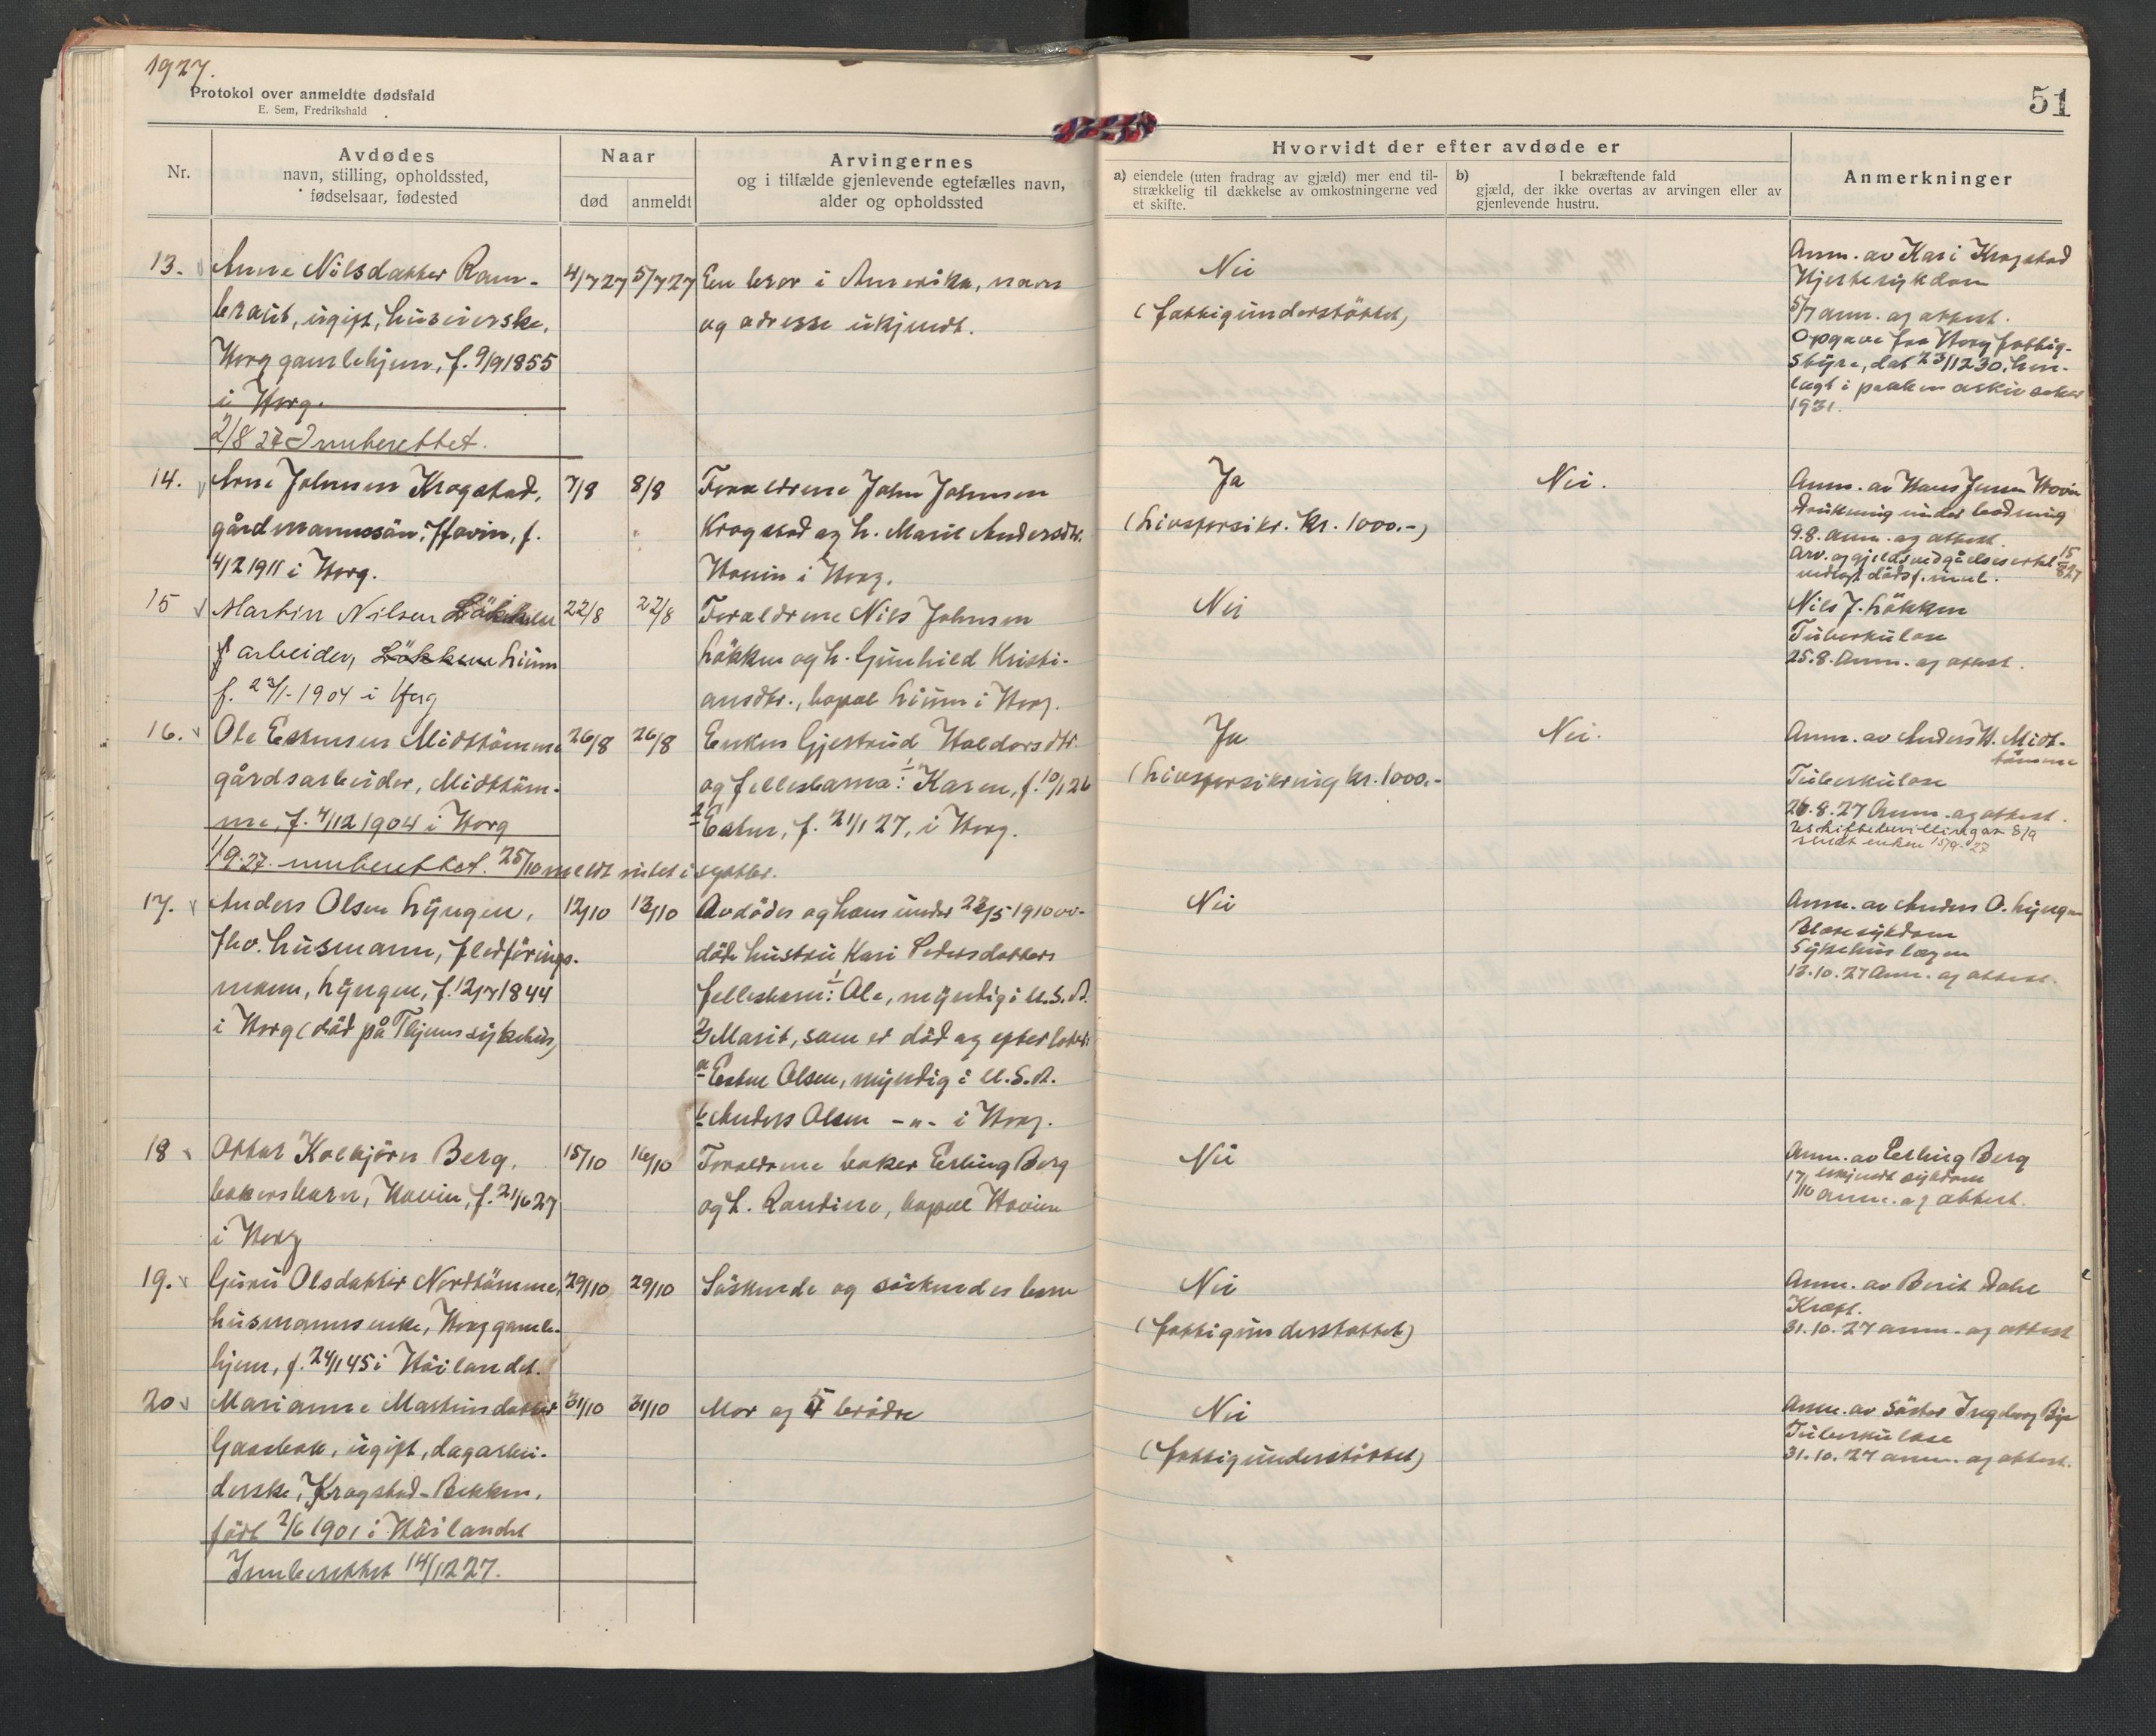 1927.
Protokol over anmeldte dødsfald
E. Sem, Fredrikshald
51
Nr.
Avdødes
navn, stilling, opholdssted,
fødselsaar, fødested
Naar
død
anmeldt
Arvingernes
og i tilfælde gjenlevende egtefælles navn,
alder og opholdssted
Hvorvidt der efter avdøde er
a) eiendele (uten fradrag av gjæld) mer end til-
strækkelig til dækkelse av omkostningerne ved
et skifte.
b) I bekræftende fald
gjæld, der ikke overtas av arvingen eller av
gjenlevende hustru.
Anmerkninger
13.
Anne Nilsdatter Ram-
braut, ugift, huseierske,
Horg gamlehjem, f. 9/9 1855
i Horg.
2/8 27 Innberettet.
4/7 27
5/7 27
En bror i Amerika, navn
og adresse ukjendt.
Nei
(fattigunderstøttet)
Anm. av Kari Krogstad
Hjertesykdom
5/7 anm. og attest.
Opgave fra Horg fattig-
styre, dat 23/12 30, hen-
lagt i pakken
1931.
14.
Arne Johnsen Krogstad,
gårdmannssön, Hovin, f.
4/2 1911 i Horg.
7/8
8/8
Foreldrene John Johnsen
Krogstad og h. Marit Andersdtr.
Hovin i Horg.
Ja
(Livsforsikr. kr. 1000.-)
Nei.
Anm. av Hans Jensen Hovin
Drukning under badning
9.8. anm. og attest.
Arv. og gjeldsvedgåelseserkl. 15/8 27
vedlagt dödsf. mel.
15
Martin Nilsen Lökken
arbeider, Lökken Lium
f. 23/1-1904 i Horg
22/8
22/8
Foreldrene Nils Johnsen
Lökken og h. Gunhild Kristi-
ansdtr., bopæl Lium i Horg.
Nei
Nils J. Lökken
Tuberkulose
25.8. Anm. og attest.
16.
Ole Estensen Midttömme
gårdsarbeider, Midttöm-
me, f. 4/12 1904 i Horg
1/9.27. innberettet. 25/10 meldt
26/8
26/8
Enken Gjertrud Haldorsdtr.
og fellesbarna: 1 Karen, f. 10/1 26
2 Esten, f. 21/1 27, i Horg.
Ja
(Livsforsikring kr. 1000.-
Nei.
Anm. av Anders H. Midt-
tömme
Tuberkulose
26.8.27 Anm. og attest.
Uskiftebevillingen 8/9
sendt enken 15/9-27
17.
Anders Olsen Lyngen,
fhv. husmann, fledförings-
mann, Lyngen, f. 12/7 1844
i Horg (död på Thjems sykehus)
12/10
13/10
Avdödes og hans under 23/5 1910 av-
döde hustru Kari Pedersdatters
fellesbarn: 1 Ole, myndig i U.S.A.
2 Marit, som er död og efterlater:
a Esten Olsen, myndig i U.S.A.
b Anders Olsen -"- i Horg.
Nei
Anm. av Anders O. Lyngen
Blæresykdom
Sykehuslægen
13.10.27 Anm. og attest.
18
Ottar Kolbjörn Berg,
bakersbarn, Hovin, f. 21/6 27
i Horg
15/10
16/10
Foreldrene baker Erling Berg
og h. Randine, bopæl Hovin
Nei
Anm. av Erling Berg
ukjendt sykdom
17/10 anm. og attest.
19.
Guru Olsdatter Nordtömme,
husmannsenke, Horg gamle-
hjem, f. 24/1 45 i Höilandet.
29/10
29/10
Söskende og söskendes barn
Nei
(fattigunderstøttet)
Anm. av Berit Dahl
Kræft.
31.10.27 anm. og attest
20
Marianne Martinsdatter
Gaasbak, ugift, dagarbei-
derske, Krogstad-Bekken,
födt 2/6 1901 i Höilandet
Innberettet 14/12 27.
31/10
31/10
Mor og 5 brödre
Nei
(fattigunderstøttet)
Anm. av söster Ingeborg Bye
Tuberkulose
31.10.27 anm. og attest.